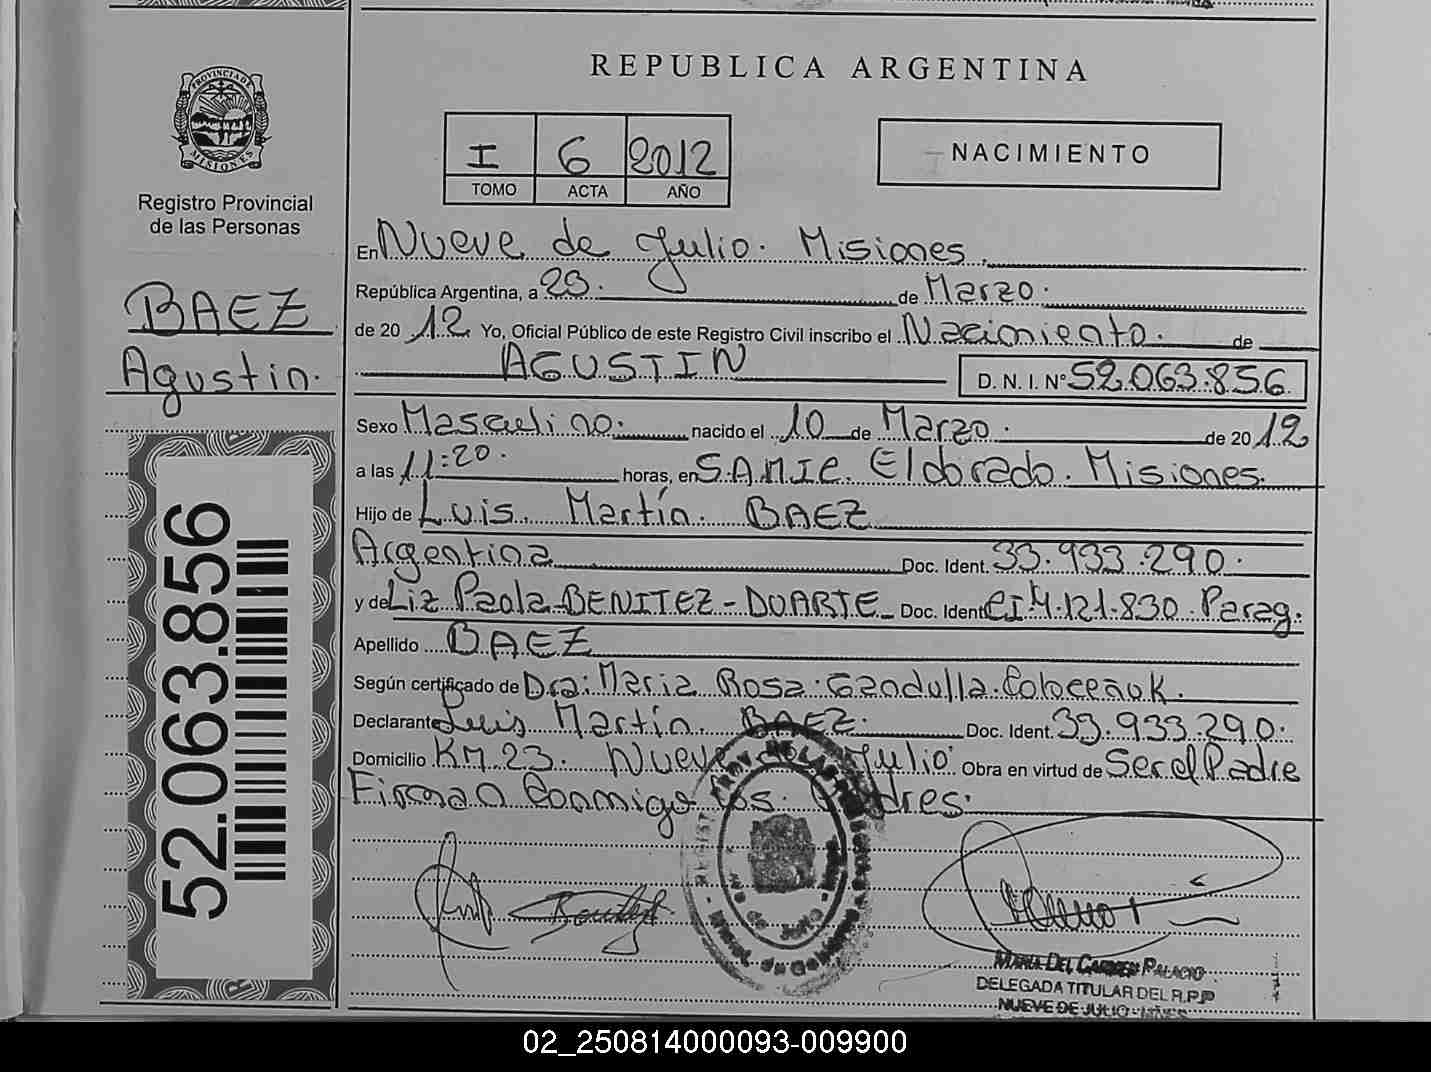 REPUBLICA ARGENTINA
PROVINCIA DE MISIONES
Registro Provincial
de las Personas
I 6 2012
TOMO ACTA AÑO
NACIMIENTO
BAEZ
Agustin.
52.063.856
En Nueve de Julio. Misiones.
República Argentina, a 29. de Marzo.
de 20 12 Yo, Oficial Público de este Registro Civil inscribo el Nacimiento. de
AGUSTIN D. N. I. Nº 52.063.856
Sexo Masculino. nacido el 10 de Marzo. de 20 12
a las 11:20. horas, en S.A.M.I.C. Eldorado. Misiones.
Hijo de Luis Martín. BAEZ
Argentina Doc. Ident. 33.933.290.
y de Liz Paola BENITEZ-DUARTE Doc. Ident CI 4.121.830. Parag.
Apellido BAEZ
Según certificado de Dra: Maria Rosa Gandulla
Declarante Luis Martín. BAEZ. Doc. Ident. 33.933.290.
Domicilio KM.23. Nueve de Julio Obra en virtud de Ser el Padre
Firman Conmigo los Padres.
MARIA DEL CARMEN PALACIO
DELEGADA TITULAR DEL R.P.P
NUEVE DE JULIO - MNES
02_250814000093-009900